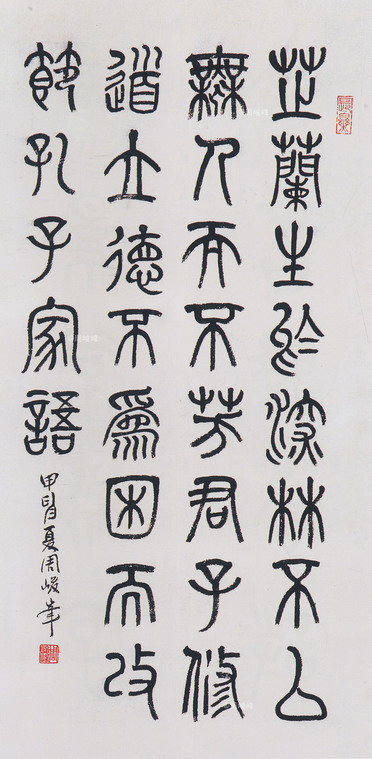 芷蘭生於深林不以
無人而不芳君子修
道立德不爲困而改
節孔子家語
夏周峻峯